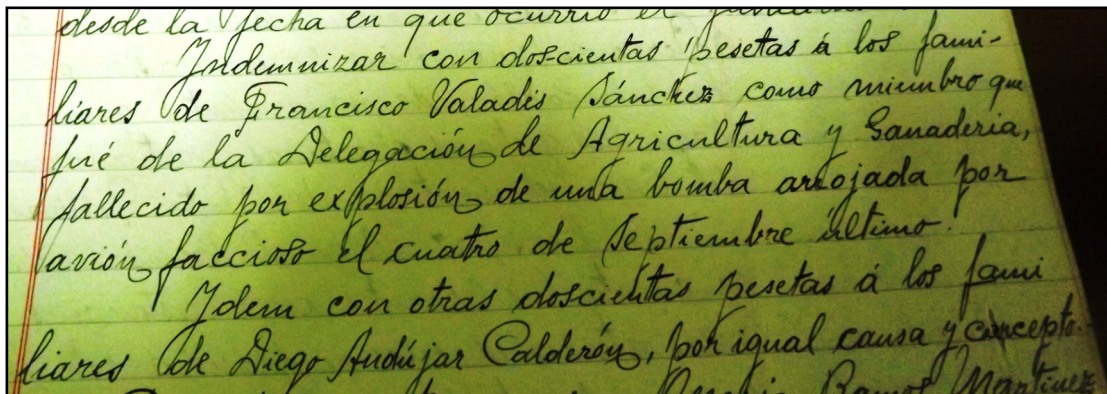 desde la fecha en que ocurrió el
Indemnizar con dos-cientas pesetas á los fami-
liares de Francisco Valadés Sánchez como miembro que
fué de la Delegación de Agricultura y Ganaderia,
fallecido por explosión de una bomba arrojada por
avión faccioso el cuatro de Septiembre último.
Idem con otras doscientas pesetas á los fami
liares de Diego Andújar Calderón, por igual causa y concepto.
Ramos Martinez